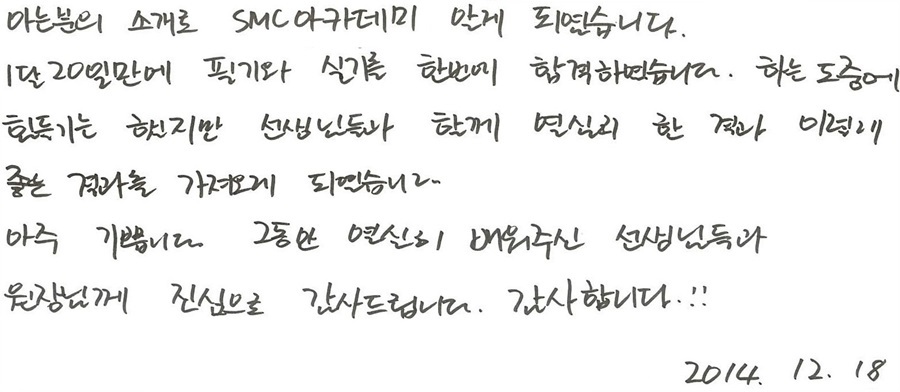 아는분의 소개로 SMC아카데미 알게 되었습니다.
1달20일만에 필기와 실기를 한번에 합격하였습니다. 하는 도중에
힘들기는 했지만 선생님들과 함께 열심히 한 결과 이렇게
좋은 결과를 가져오게 되었습니다.
아주 기쁩니다. 그동안 열심히 배워주신 선생님들과
원장님께 진심으로 감사드립니다. 감사합니다.!!
2014. 12. 18